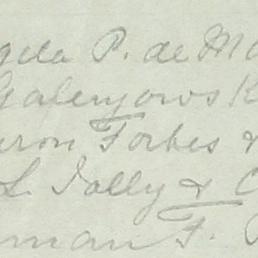 gela P. de Ma
Galenyows K
uron Forbes &
L. Jolly & C
man F.